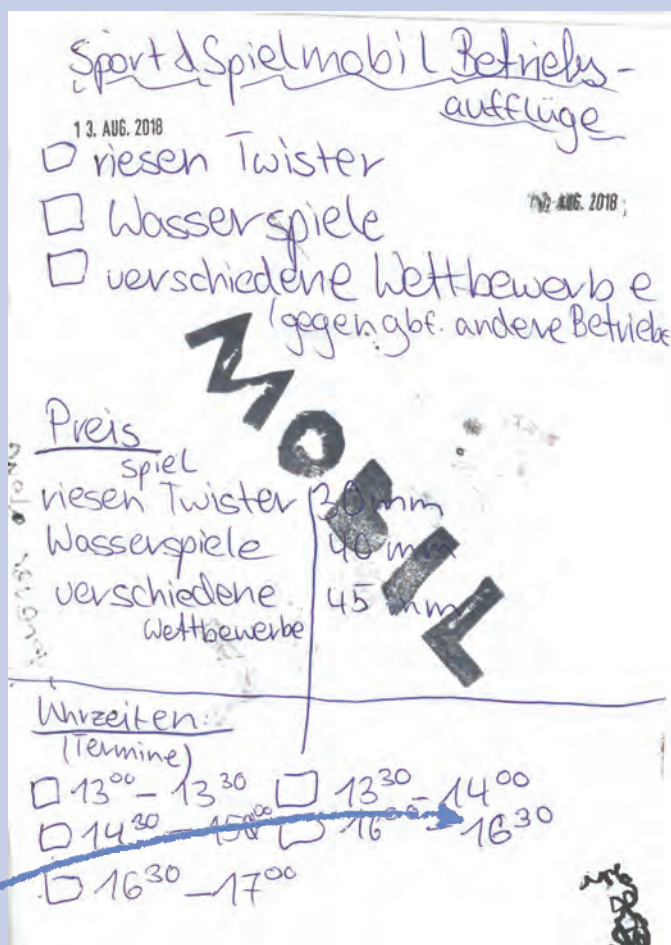 Sport & Spielmobil Betriebs-
aufflüge
13. AUG. 2018
riesen Twister
AUG. 2018
Wasserspiele
verschiedene Wettbewerbe
(gegen gbf. andere Betriebe
MOBIL
Preis
spiel
riesen Twister 30 mm
Wasserspiele 40 mm
verschiedene 45 mm
Wettbewerbe
Uhrzeiten:
(Termine)
13⁰⁰ – 13³⁰ 13³⁰ – 14⁰⁰
14³⁰ – 15⁰⁰ 16⁰⁰ – 16³⁰
16³⁰ – 17⁰⁰